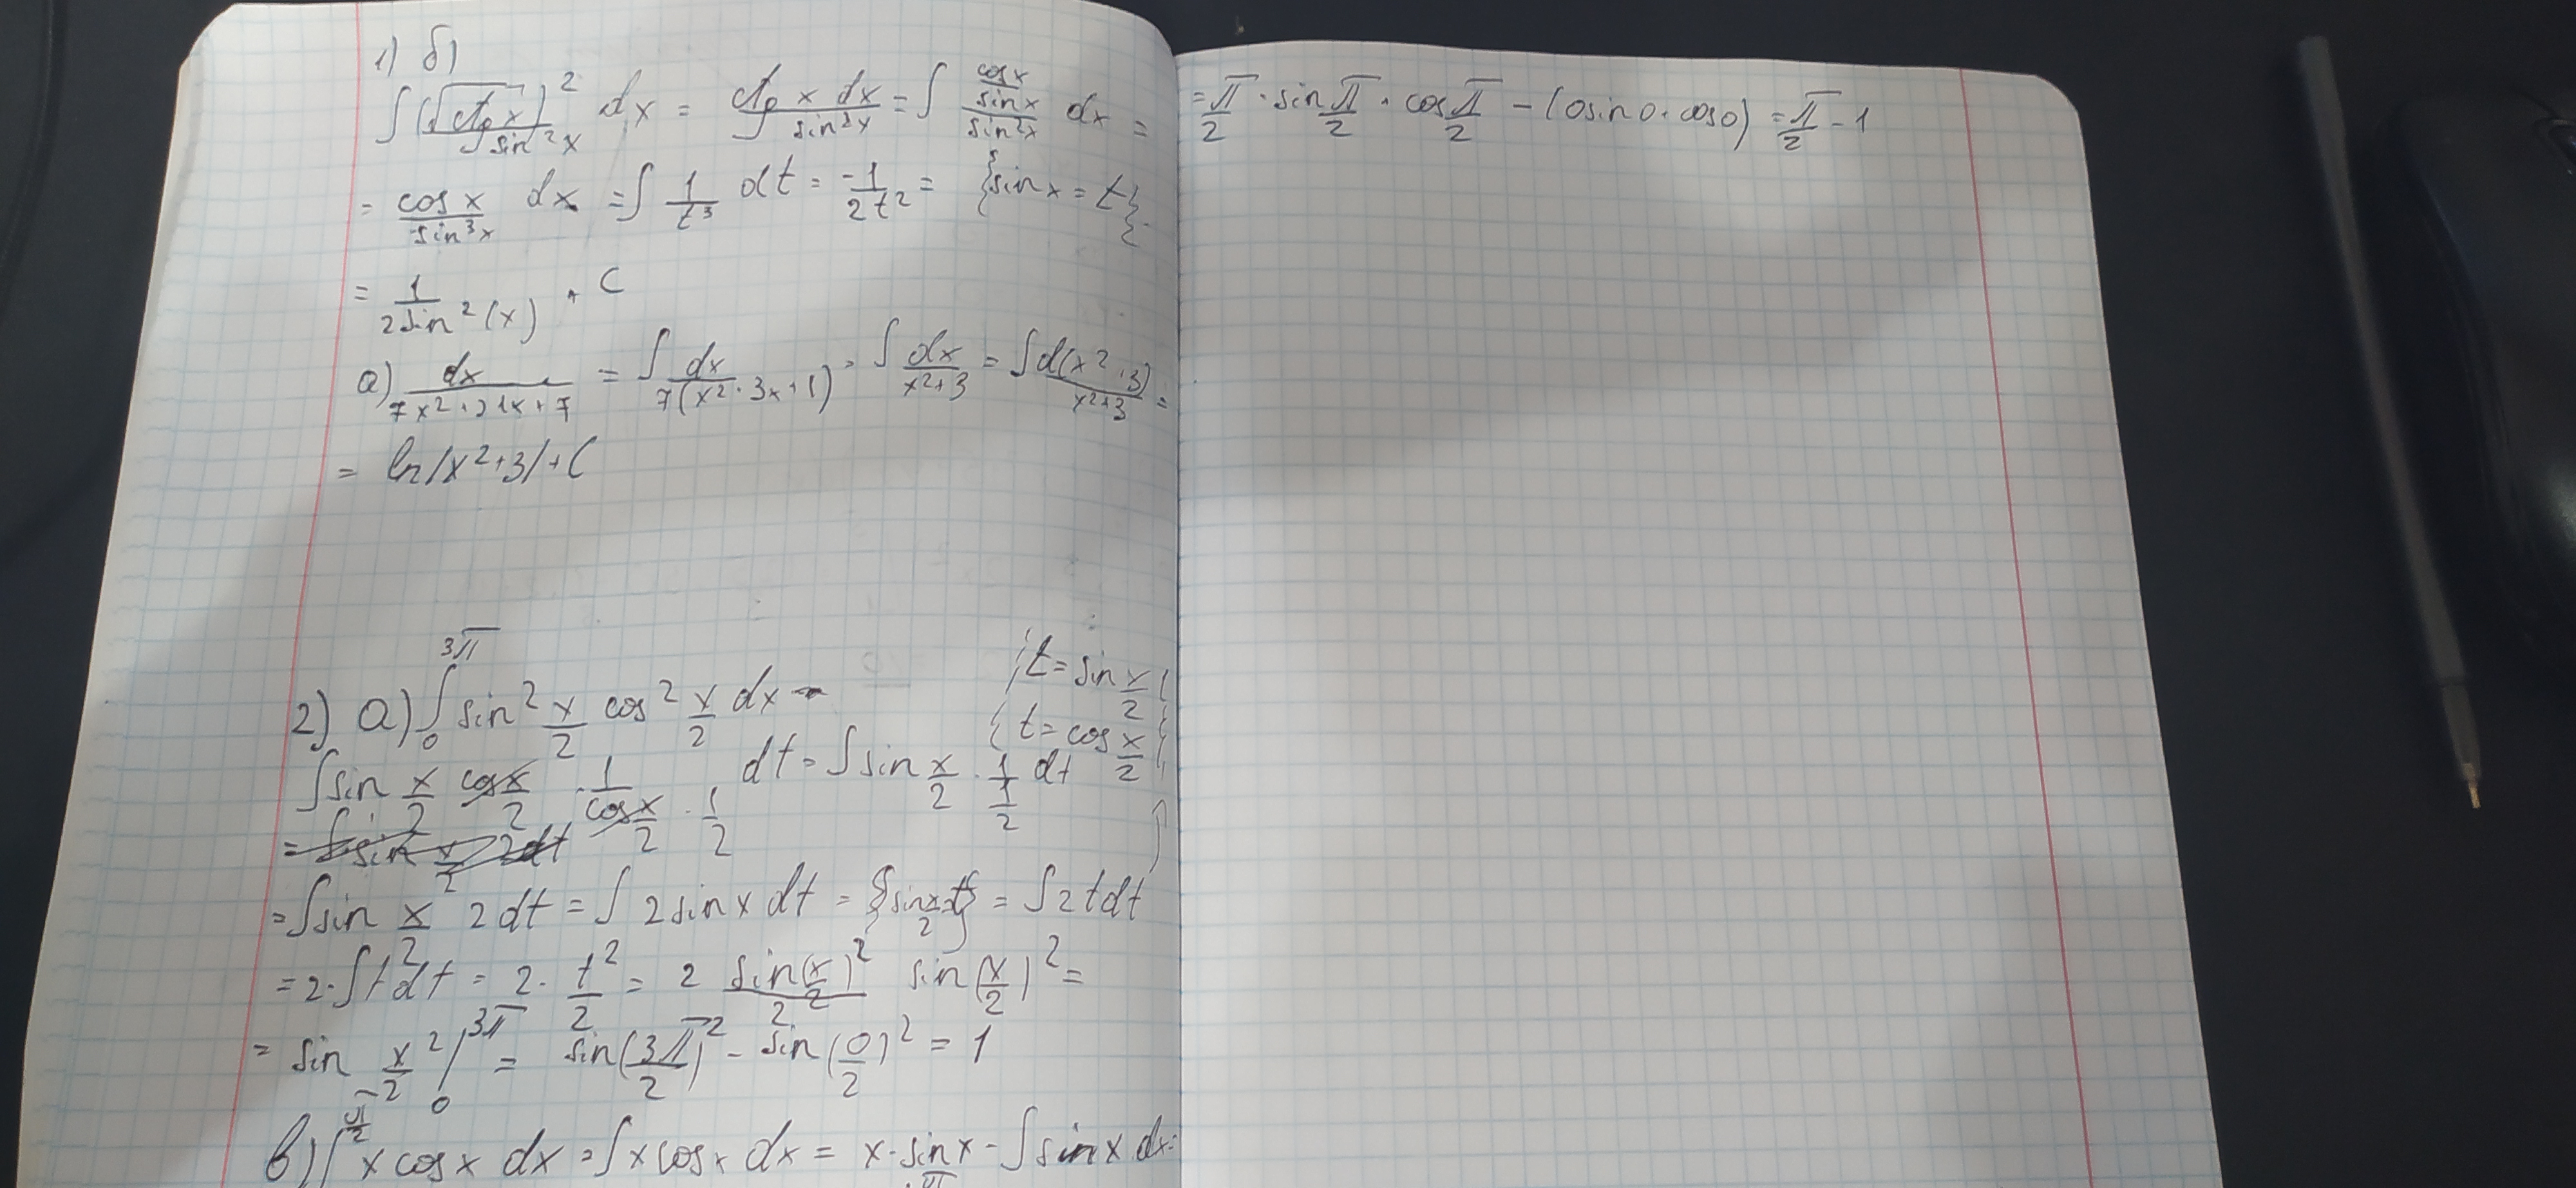 1) б)
∫(√ctg x)² / sin²x dx = ∫ ctg x dx / sin²x = ∫ (cos x / sin x) / sin²x dx =
= cos x / sin³x dx = ∫ 1/t³ dt = -1/2t² = {sin x = t}
= 1 / 2sin²(x) + C
а) dx / 7x²+21x+7 = ∫ dx / 7(x²+3x+1) = ∫ dx / x²+3 = ∫ d(x²+3) / x²+3 =
= ln|x²+3|+C
2) а) ∫₀^3π sin² x/2 cos² x/2 dx = {t = sin x/2}
{t = cos x/2}
∫ sin x/2 cos x/2 · 1 / (cos x/2 · 1/2) dt = ∫ sin x/2 · 1/(1/2) dt
= ∫ sin x/2 2dt = ∫ 2 sin x dt = {sin x/2 = t} = ∫ 2t dt
= 2·∫t dt = 2 · t²/2 = 2 sin(x/2)²/2 sin(x/2)² =
= sin x/2 ² |₀^3π = sin(3π/2)² - sin(0/2)² = 1
в) ∫^π/2 x cos x dx = ∫ x cos x dx = x·sin x - ∫ sin x dx =
= π/2 · sin π/2 + cos π/2 - (0 sin 0 + cos 0) = π/2 - 1